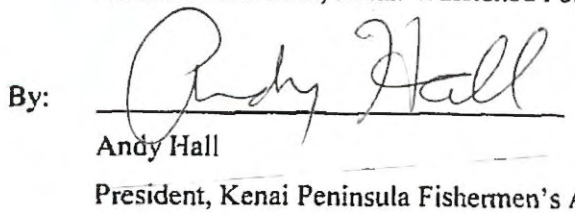 By: Andy Hall
Andy Hall
President, Kenai Peninsula Fishermen's A